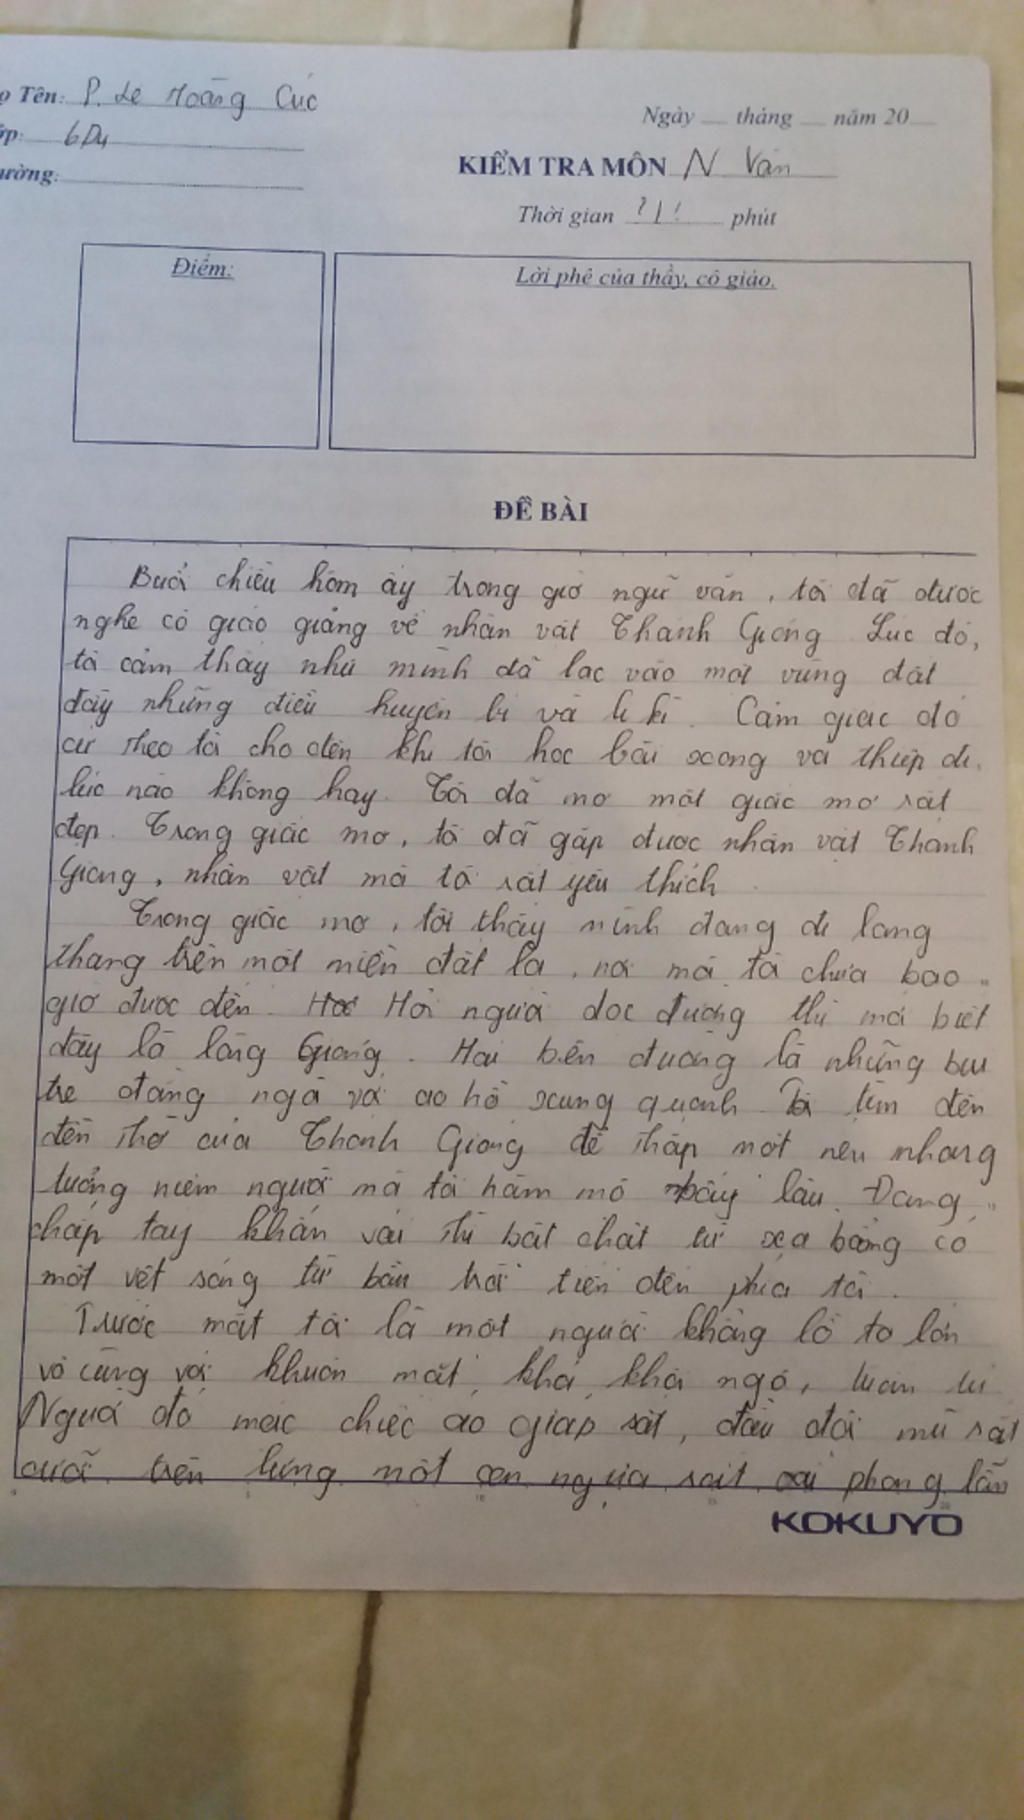 ọ Tên: P. Lê Hoàng Cúc
Ngày __ tháng __ năm 20__
ớp: 6D4
KIỂM TRA MÔN N Văn
ường:
Thời gian ?!! phút
Điểm:
Lời phê của thầy, cô giáo.
ĐỀ BÀI
Buổi chiều hôm ấy trong giờ ngữ văn, tôi đã được
nghe cô giáo giảng về nhân vật Thánh Gióng Lúc đó,
tôi cảm thấy như mình đã lạc vào một vùng đất
đầy những điều huyền bí và li kì. Cảm giác đó
cứ theo tôi cho đến khi tôi học bài xong và thiếp đi
lúc nào không hay. Tôi đã mơ một giấc mơ rất
đẹp. Trong giấc mơ, tôi đã gặp được nhân vật Thánh
Gióng, nhân vật mà tôi rất yêu thích.
Trong giấc mơ, tôi thấy mình đang đi lang
thang trên một miền đất lạ, nơi mà tôi chưa bao
giờ được đến. Hỏi người dọc đường thì mới biết
đây là làng Gióng. Hai bên đường là những bụi
tre đằng ngà và ao hồ xung quanh. Tôi tìm đến
đền thờ của Thánh Gióng để thắp một nén nhang
tưởng niệm người mà tôi hâm mộ bấy lâu. Đang
chắp tay khấn vái thì bất chợt từ xa bỗng có
một vệt sáng từ bầu trời tiến đến phía tôi.
Trước mặt tôi là một người khổng lồ to lớn
vô cùng với khuôn mặt khá khôi ngô, tuấn tú
Người đó mặc chiếc áo giáp sắt, đầu đội mũ sắt
cưỡi trên lưng một con ngựa sắt oai phong lẫm
KOKUYO